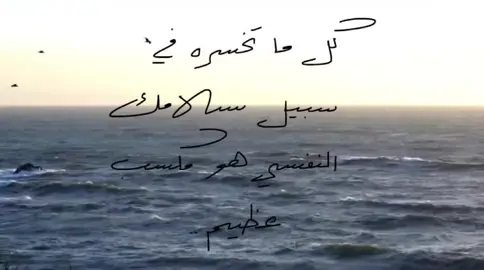 كل ما تخسره في
سبيل سلامك
النفسي هو مكسب
عظيم..